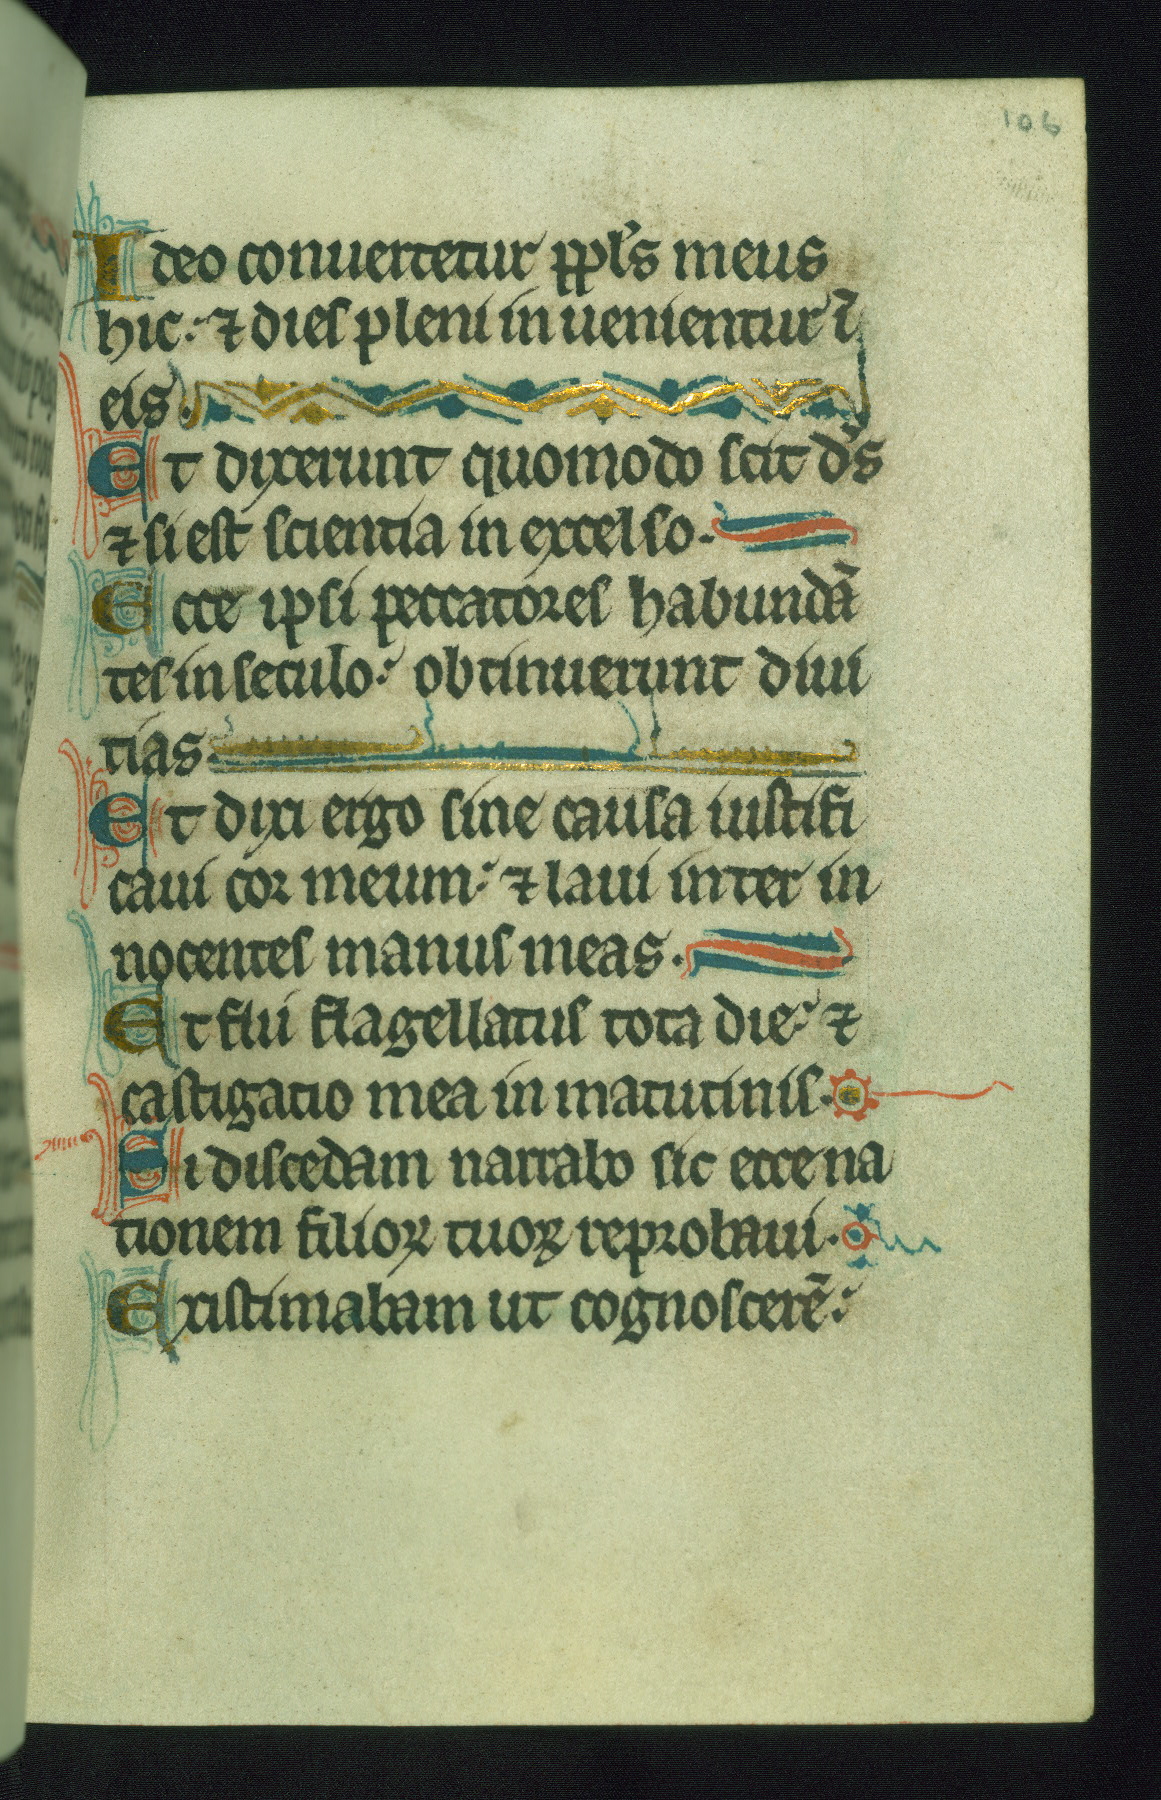 106
Ideo conuertetur ppl's meus
hic: ⁊ dies pleni inuenientur ī
eis.
Et dixerunt quomodo scit d's
⁊ si est scientia in excelso.
Ecce ipsi peccatores habundā
tes in seculo: obtinuerunt diui
tias.
Et dixi ergo sine causa iustifi
caui cor meum: ⁊ laui inter in
nocentes manus meas.
Et fui flagellatus tota die: ⁊
castigatio mea in matutinis.
Si discedam narrabo sic ecce na
tionem filioꝝ tuoꝝ reprobaui.
Existimabam ut cognoscerē: